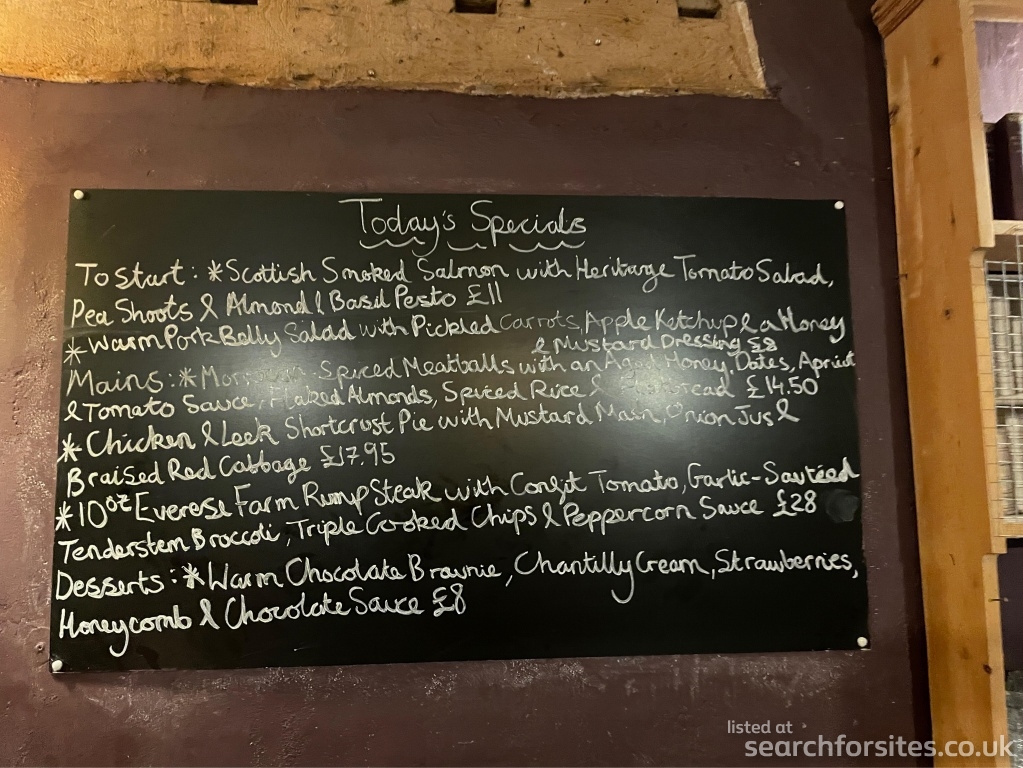 Today's Specials
To start: *Scottish Smoked Salmon with Heritage Tomato Salad,
Pea Shoots & Almond & Basil Pesto £11
*Warm Pork Belly Salad with Pickled Carrots, Apple Ketchup & a Honey
& Mustard Dressing £8
Mains: * Spiced Meatballs with an Honey, Dates, Apricot
& Tomato Sauce, Flaked Almonds, Spiced Rice & £14.50
*Chicken & Leek Shortcrust Pie with Mustard Main, Onion Jus &
Braised Red Cabbage £17.95
*10oz Everese Farm Rump Steak with Confit Tomato, Garlic-Sautéed
Tenderstem Broccoli, Triple Cooked Chips & Peppercorn Sauce £28
Desserts: *Warm Chocolate Brownie, Chantilly Cream, Strawberries,
Honeycomb & Chocolate Sauce £8
listed at
searchforsites.co.uk